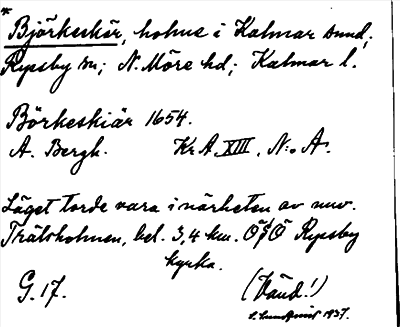 * Björkeskär, holme i Kalmar sund,
Rypsby sn; N. Möre hd; Kalmar l.
Börkeskiär 1654.
A. Bergh. Kr A XIII, N:o A.
Läget torde vara i närheten av nuv.
Trätholmen, bel. 3,4 km. Ö{{illegible}}Ö Rypsby
kyrka.
G. 17. (Vänd!)
1937.